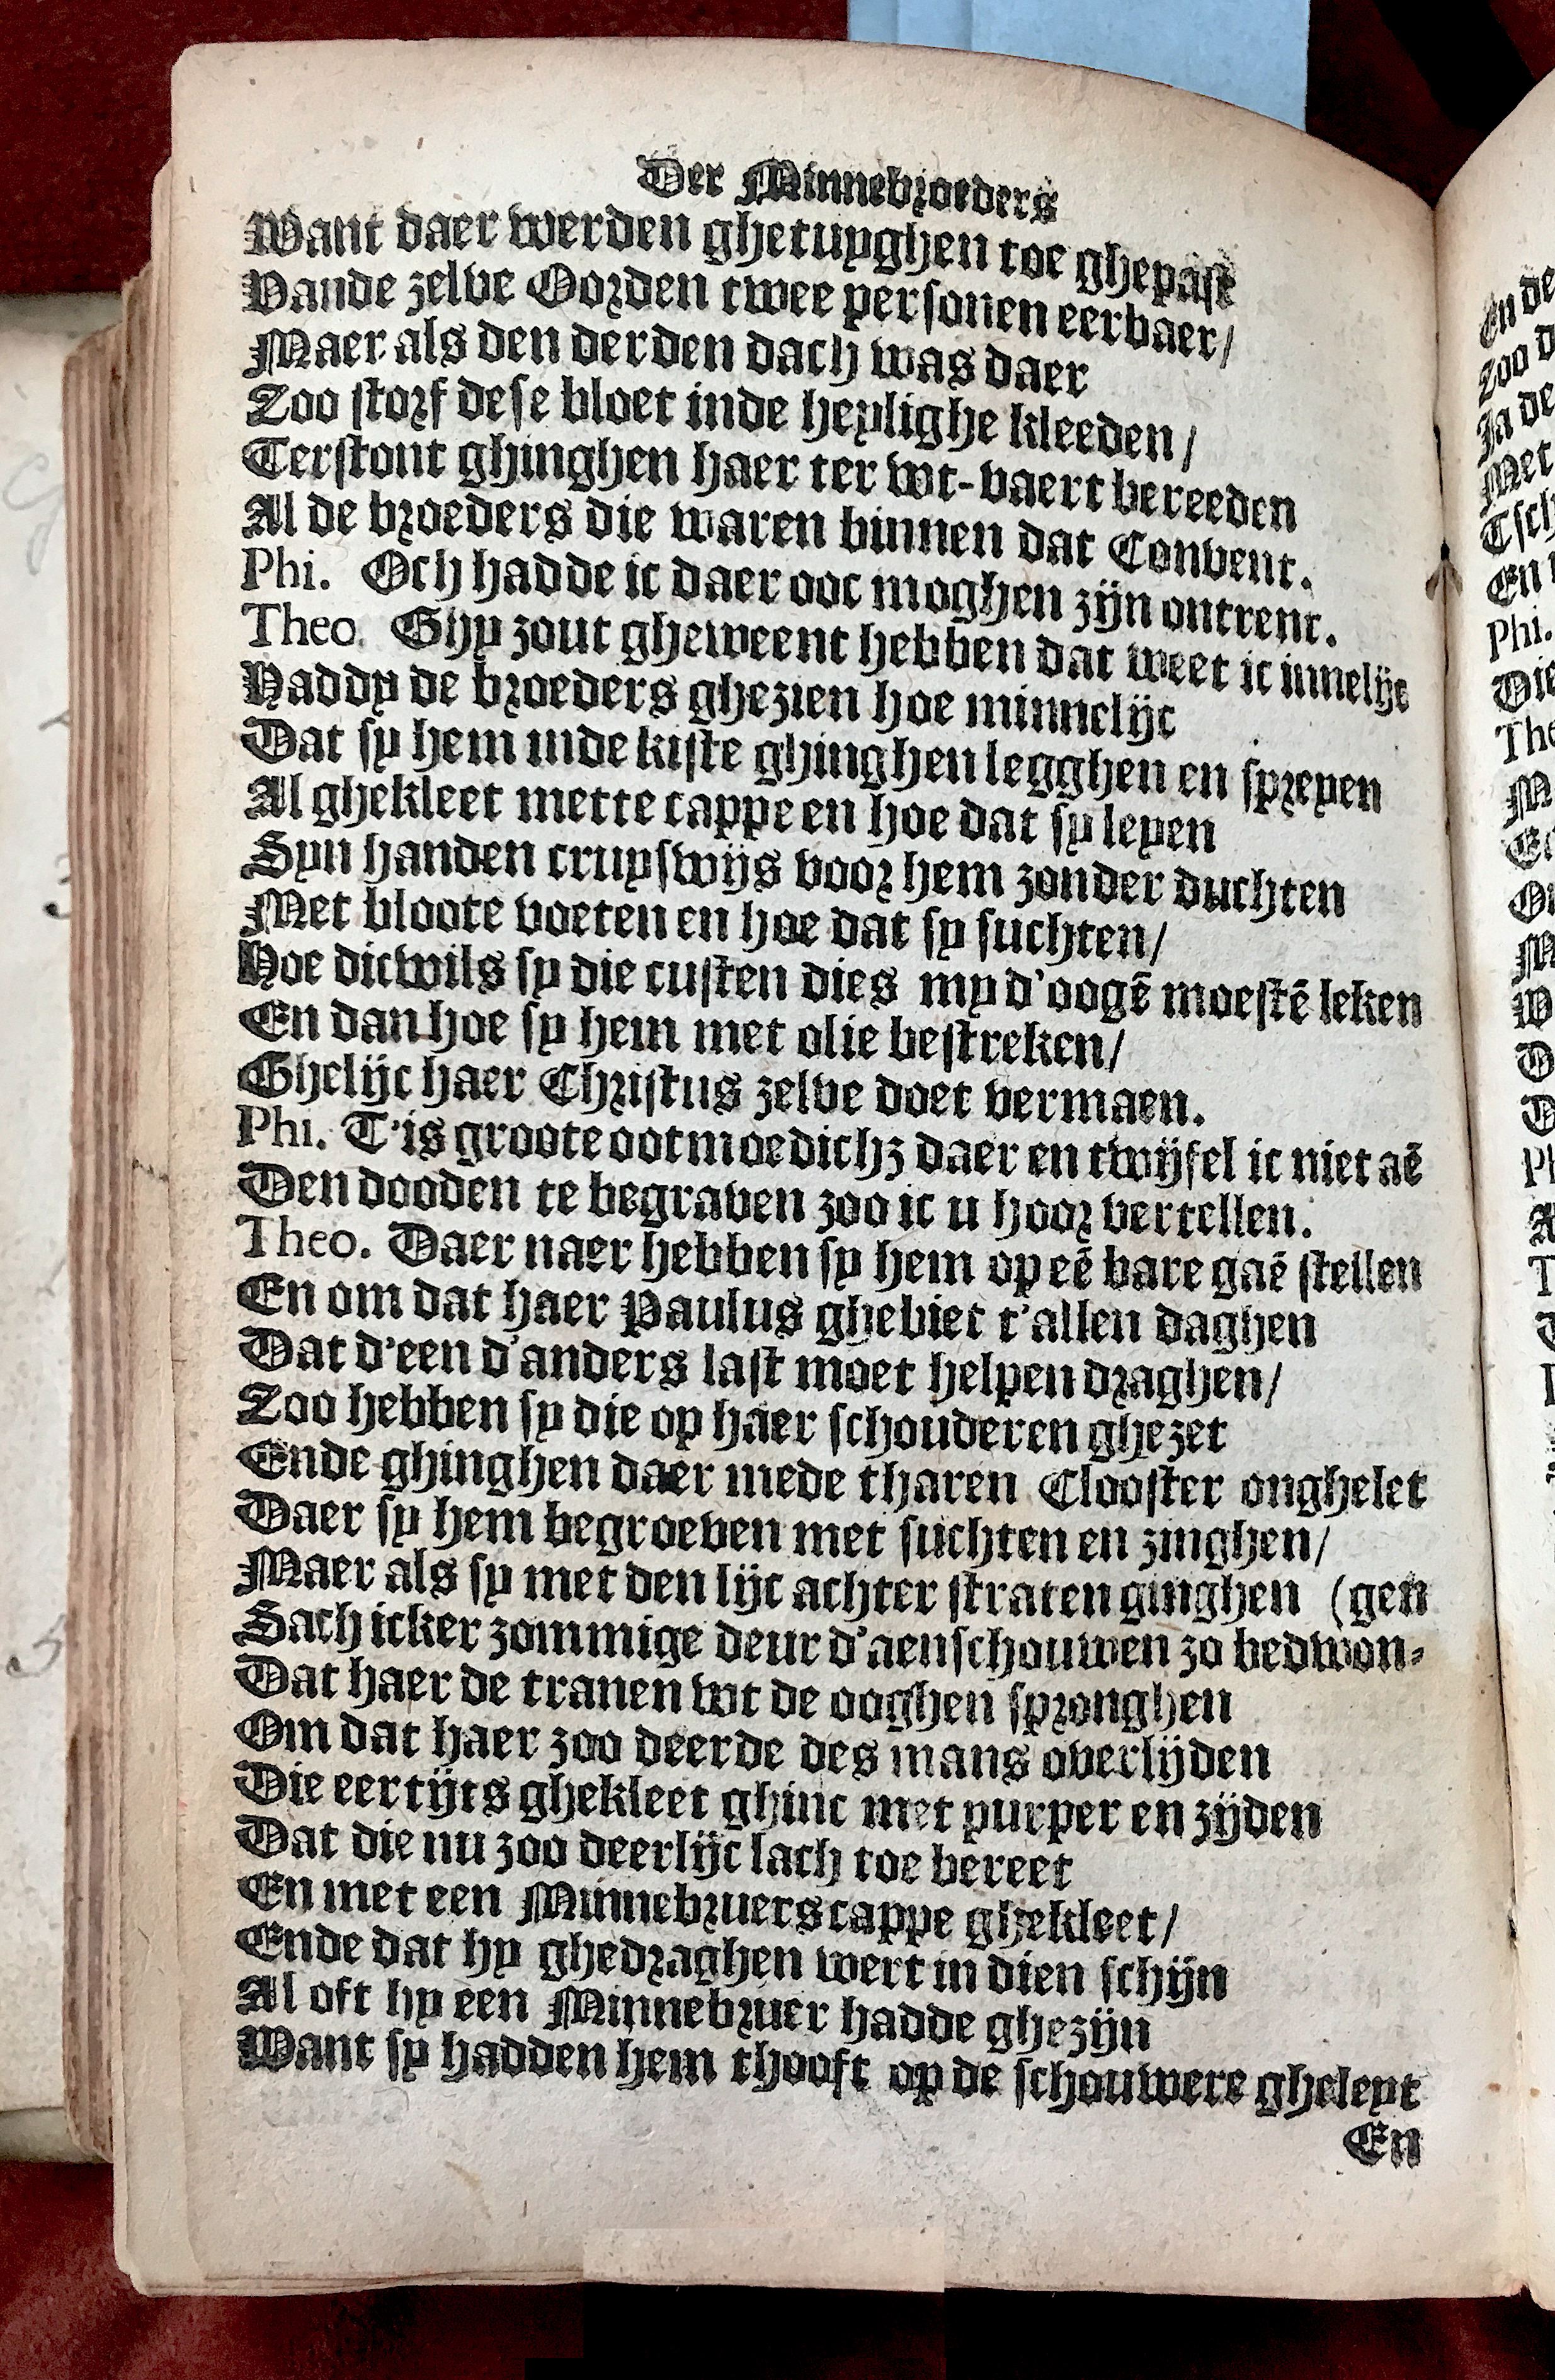 Der Minnebroeders
Want daer werden ghetuyghen toe ghepast
Vande zelve Oorden twee personen eerbaer/
Maer als den derden dach was daer
Zoo storf dese bloet inde heylighe kleeden/
Terstont ghinghen haer ter wt-vaert bereeden
Al de broeders die waren binnen dat Convent.
Phi. Och hadde ic daer ooc moghen zijn ontrent.
Theo. Ghy zout gheweent hebben dat weet ic innelijc
Haddy de broeders ghezien hoe minnelijc
Dat sy hem inde kiste ghinghen legghen en spreyen
Al ghekleet mette cappe en hoe dat sy leyen
Syn handen cruyswijs voor hem zonder duchten
Met bloote voeten en hoe dat sy suchten/
Hoe dicwils sy die custen dies my d'oogē moestē leken
En dan hoe sy hem met olie bestreken/
Ghelijc haer Christus zelve doet vermaen.
Phi. T'is groote ootmoedichz daer en twijfel ic niet aē
Den dooden te begraven zoo ic u hoor vertellen.
Theo. Daer naer hebben sy hem op eē bare gaē stellen
En om dat haer Paulus ghebiet t'allen daghen
Dat d'een d'anders last moet helpen draghen/
Zoo hebben sy die op haer schouderen ghezet
Ende ghinghen daer mede tharen Clooster onghelet
Daer sy hem begroeven met suchten en zinghen/
Maer als sy met den lijc achter straten ginghen (gen
Sach icker zommige deur d'aenschouwen zo bedwon-
Dat haer de tranen wt de ooghen spronghen
Om dat haer zoo deerde des mans overlijden
Die eertijts ghekleet ghinc met purper en zijden
Dat die nu zoo deerlijc lach toe bereet
En met een Minnebruers cappe ghekleet/
Ende dat hy ghedraghen wert in dien schijn
Al oft hy een Minnebruer hadde ghezijn
Want sy hadden hem thooft op de schouwere gheleyt
En
En de
Zoo d
Ja de
Met
Tsch
En
Phi.
Die
The